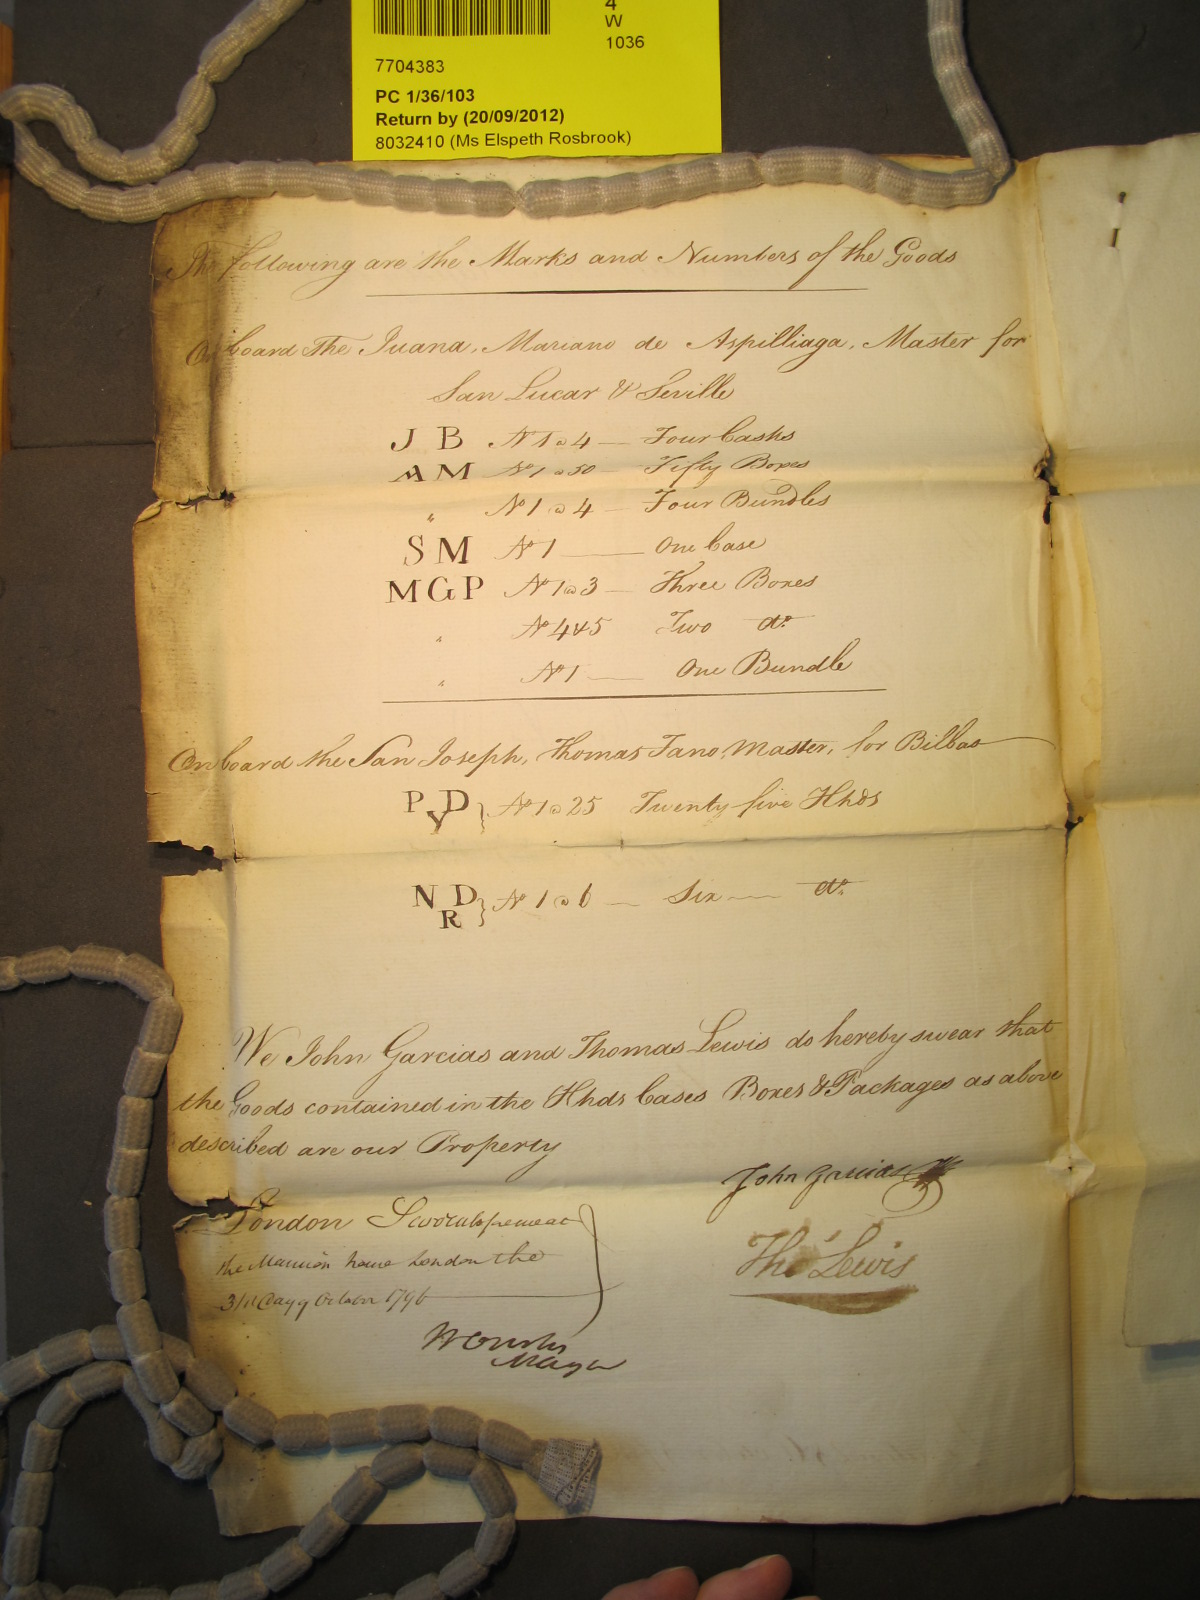 4
W
1036
7704383
PC 1/36/103
Return by (20/09/2012)
8032410 (Ms Elspeth Rosbrook)
The following are the Marks and Numbers of the Goods
On board The Juana, Mariano de Aspilliaga, Master for
San Lucar & Seville
J B No 1 a 4 — Four Casks
AM No 1 a 50 — Fifty Boxes
" No 1 a 4 — Four Bundles
SM No 1 — One Case
MGP No 1 a 3 — Three Boxes
" No 4 & 5 Two do
" No 1 — One Bundle
On board the San Joseph, Thomas Tano, Master, for Bilbao
P D } No 1 a 25 Twenty five Hhds
V
N D } No 1 a 6 — Six — do
R
We John Garcias and Thomas Lewis do hereby swear that
the Goods contained in the Hhds Cases Boxes & Packages as above
described are our Property
John Garcias
London Sworn at
Thos Lewis
the Mansion house London the
31st Day of October 1796
W Curtis
Mayor